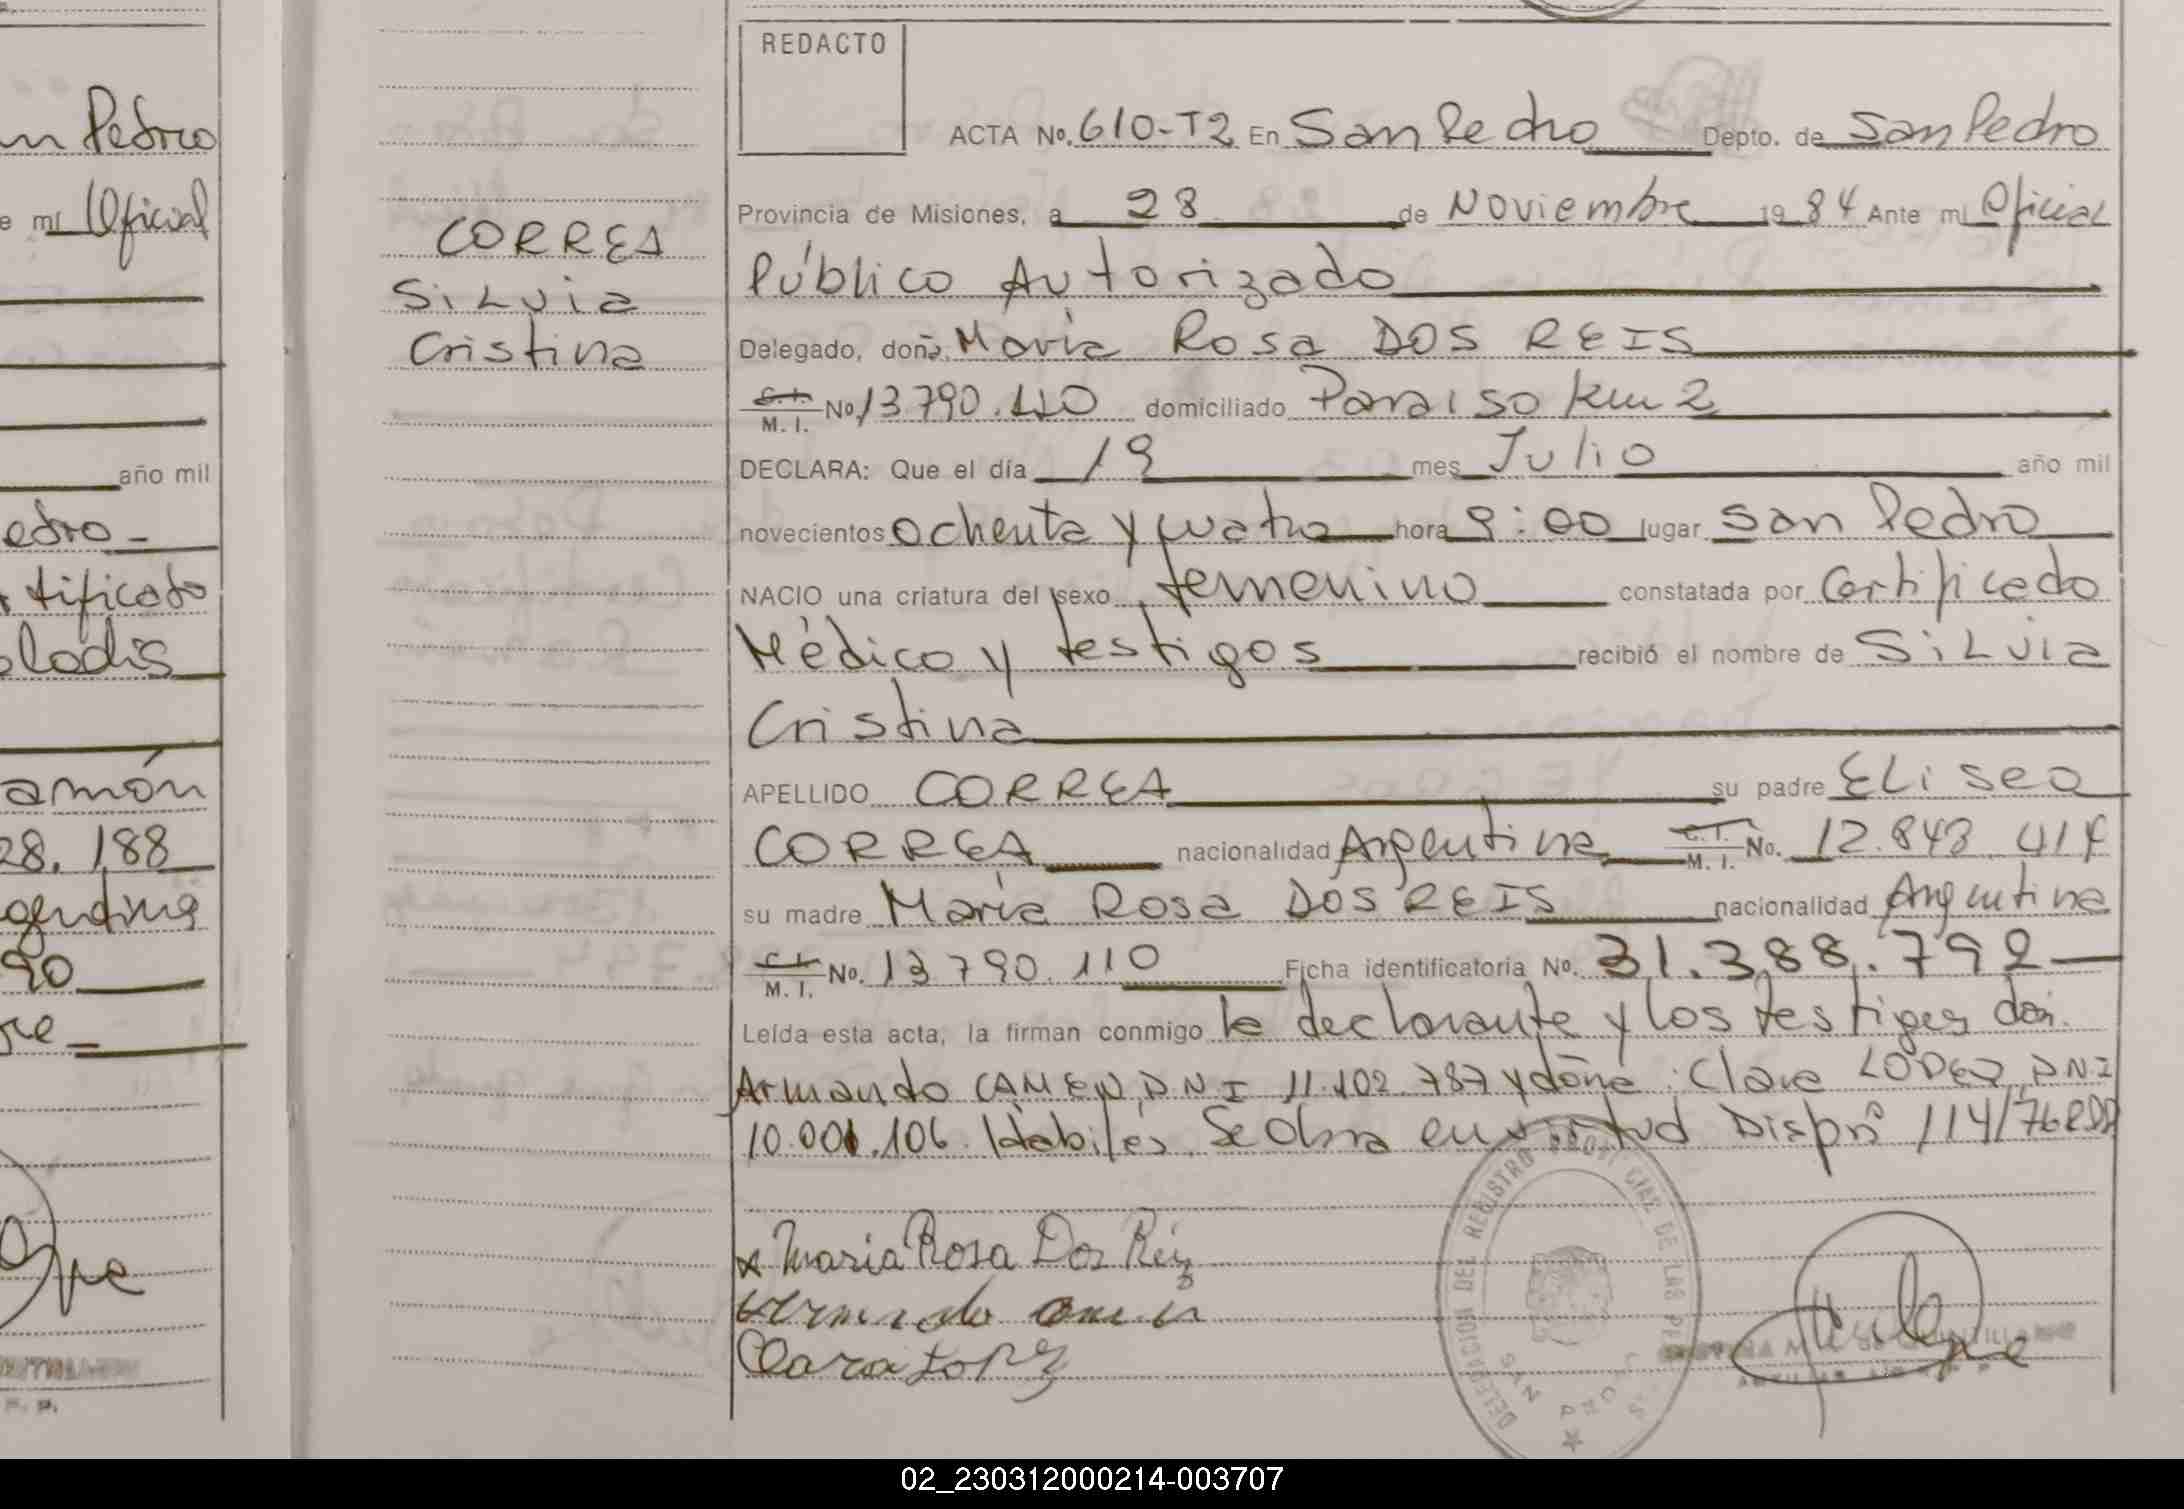 n Pedro
e mí Oficial
año mil
edro
tificado
lodis
amón
28.188
gentina
90
re
CORREA
SiLvia
Cristina
REDACTO
ACTA No. 610-T2 En San Pedro Depto. de San Pedro
Provincia de Misiones, a 28 de Noviembre 1984 Ante mí Oficial
Público Autorizado
Delegado, doña María Rosa DOS REIS
C.I. M. I. No. 13790.110 domiciliado Paraiso km 2
DECLARA: Que el día 19 mes Julio año mil
novecientos ochenta y cuatro hora 9:00 lugar San Pedro
NACIO una criatura del sexo femenino constatada por Certificado
Médico y testigos recibió el nombre de SiLvia
Cristina
APELLIDO CORREA su padre ELiseo
CORREA nacionalidad Argentina C.I. M. I. No. 12.843.414
su madre María Rosa DOS REIS nacionalidad Argentina
C.I. M. I. No. 13790.110 Ficha identificatoria No. 31.388.792
Leída esta acta, la firman conmigo la declarante y los testigos don:
Armando CAMEN, DNI 11.102.787 y doña: Clara LOPEZ, DNI
10.001.106. Hábiles. Se obra en virtud Disp nº 114/76
x Maria Rosa Dos Reis
Clara Lopez
DELEGACION DEL REGISTRO PROVINCIAL DE LAS PERSONAS
SAN PEDRO
02_230312000214-003707